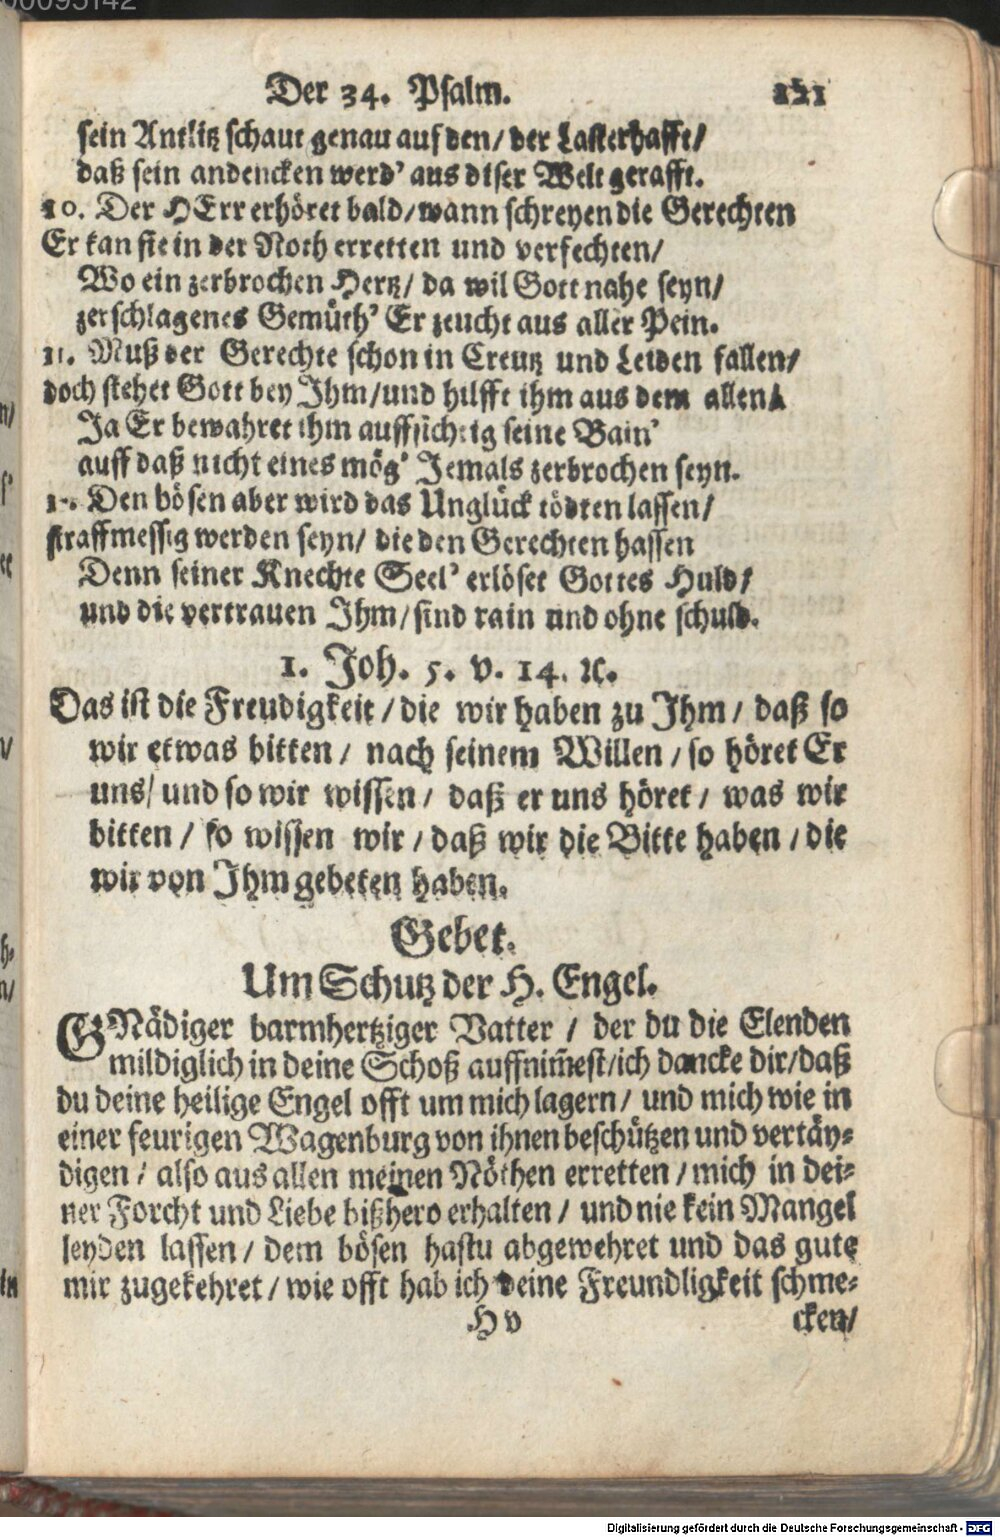 00095142
Der 34. Psalm. 121
sein Antlitz schaut genau auf den/ der Lasterhafft/
daß sein andencken werd' aus diser Welt gerafft.
10. Der HErr erhöret bald/ wann schreyen die Gerechten
Er kan sie in der Noth erretten und verfechten/
Wo ein zerbrochen Hertz/ da wil Gott nahe seyn/
zerschlagenes Gemüth' Er zeucht aus aller Pein.
11. Muß der Gerechte schon in Creutz und Leiden fallen/
doch stehet Gott bey Ihm/ und hilfft ihm aus dem allen/
Ja Er bewahret ihm auffsichtig seine Bain'
auff daß nicht eines mög' Jemals zerbrochen seyn.
12. Den bösen aber wird das Unglück tödten lassen/
straffmessig werden seyn/ die den Gerechten hassen
Denn seiner Knechte Seel' erlöset Gottes Huld/
und die vertrauen Ihm/ sind rain und ohne schuld.
1. Joh. 5. v. 14. ꝛc.
Das ist die Freudigkeit/ die wir haben zu Ihm/ daß so
wir etwas bitten/ nach seinem Willen/ so höret Er
uns/ und so wir wissen/ daß er uns höret/ was wir
bitten/ so wissen wir/ daß wir die Bitte haben/ die
wir von Ihm gebeten haben.
Gebet.
Um Schutz der H. Engel.
GNädiger barmhertziger Vatter/ der du die Elenden
mildiglich in deine Schoß auffnim̃est/ ich dancke dir/ daß
du deine heilige Engel offt um mich lagern/ und mich wie in
einer feurigen Wagenburg von ihnen beschützen und vertäy-
digen/ also aus allen meinen Nöthen erretten/ mich in dei-
ner Forcht und Liebe bißhero erhalten/ und nie kein Mangel
leyden lassen/ dem bösen hastu abgewehret und das gute
mir zugekehret/ wie offt hab ich deine Freundligkeit schme-
H v cken/
Digitalisierung gefördert durch die Deutsche Forschungsgemeinschaft - DFG